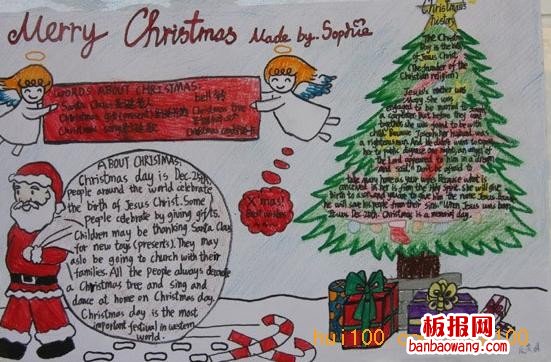 Merry Christmas Made by: Sophie
WORDS ABOUT CHRISTMAS:
Santa Claus bell
Christmas Christmas tree
Christmas song Christmas
ABOUT CHRISTMAS:
Christmas day is Dec. 25th
people around the world celebrate
the birth of Jesus Christ. Some
people celebrate by giving gifts.
Children may be thanking Santa Claus
for new toys (presents). They may
aslo be going to church with their
families. All the people always decorate
a Christmas tree and sing and
dance at home on Christmas day.
Christmas day is the most
important festival in western
world.
X'mas!
Best wishes
Christmas
history
The Christmas
Day is the birth
of Jesus Christ
(the founder of the
Christian religion)
Jesus's mother was
Mary. She was
to be married to Joseph,
a carpenter. But before they
together, she
child. Because Joseph her husband was
a righteous man and He didn't want to
public disgrace. One night an angel of
the Lord appeared to him in a dream
and said, " Don't be afraid to
take Mary home as your wife. Because what is
conceived in her is from the Holy Spirit. She will give
birth to him the name Jesus, because
he will save his people from their sins." When Jesus was born,
Dec. 25th. Christmas is a memorial day.
hai100
100
板报网
banbaowang.com